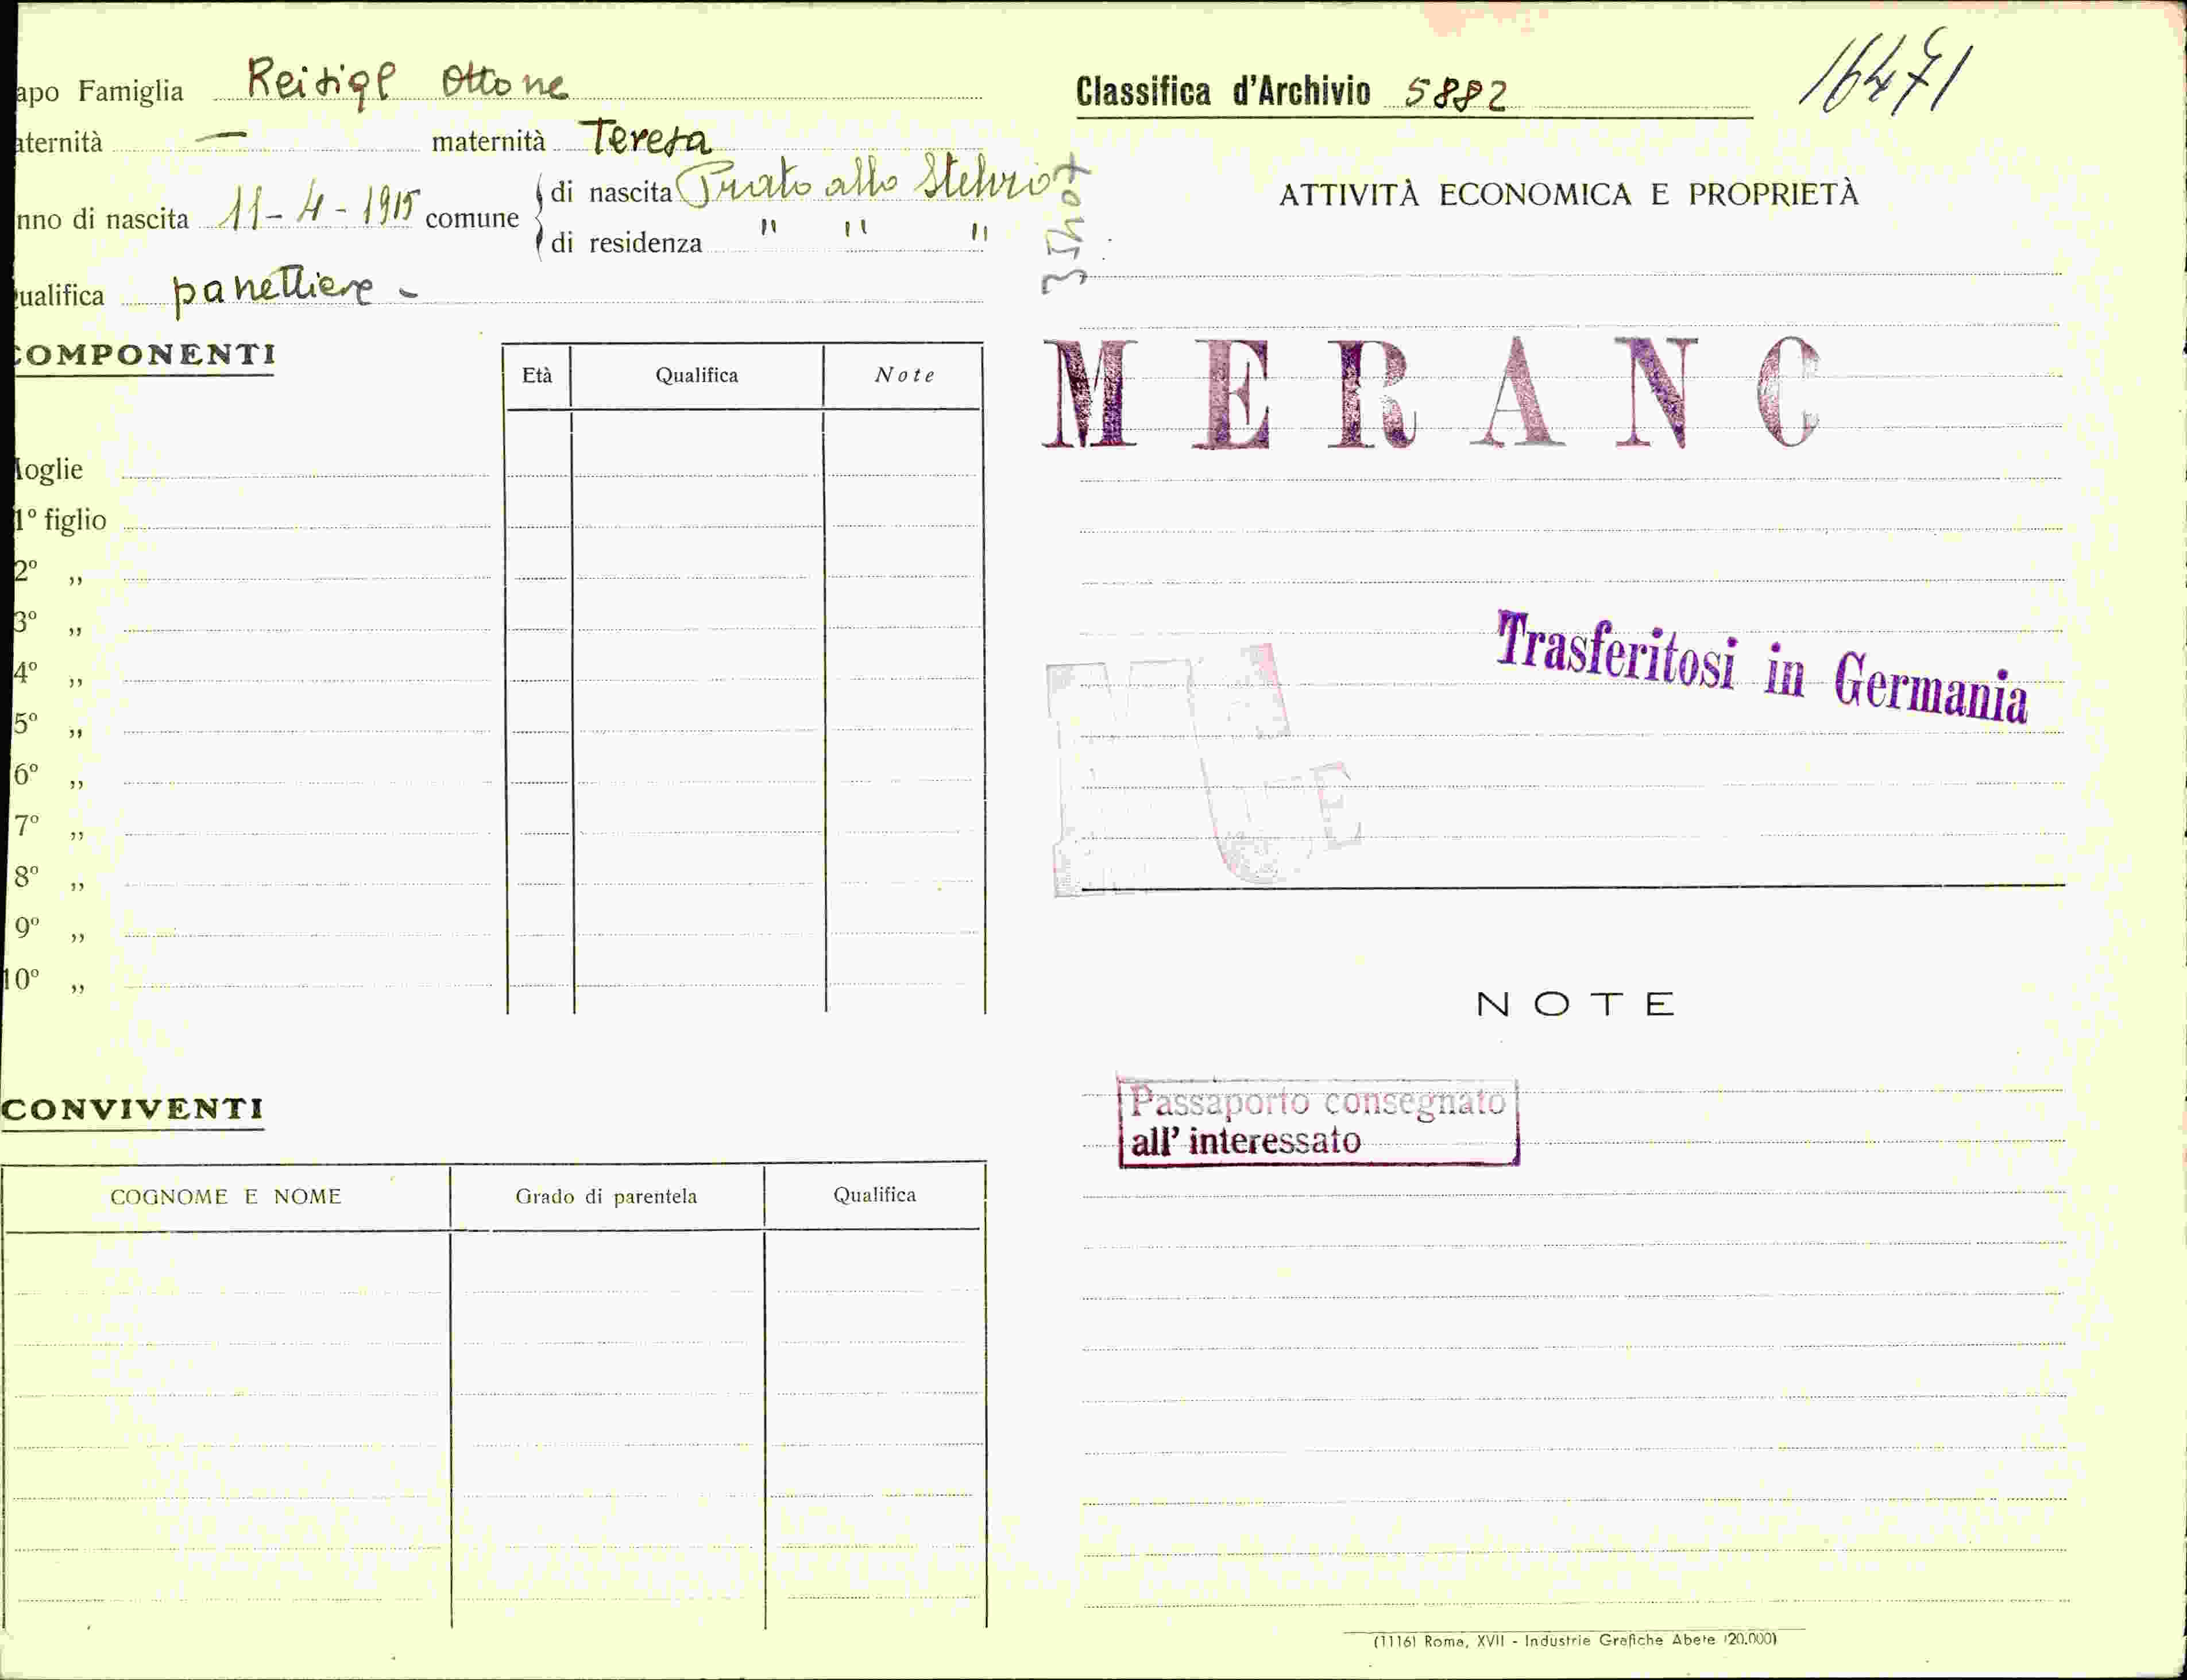 apo Famiglia Reisigl Ottone
aternità — maternità Teresa
nno di nascita 11-4-1915 comune di nascita Prato allo Stelvio
di residenza " " "
ualifica panettiere -
COMPONENTI
Età Qualifica Note
oglie
1º figlio
2º ,,
3º ,,
4º ,,
5º ,,
6º ,,
7º ,,
8º ,,
9º ,,
10º ,,
CONVIVENTI
COGNOME E NOME Grado di parentela Qualifica
Classifica d'Archivio 5882
16471
ATTIVITÀ ECONOMICA E PROPRIETÀ
MERANO
Trasferitosi in Germania
NOTE
Passaporto consegnato
all' interessato
(1116) Roma, XVII - Industrie Grafiche Abete (20.000)